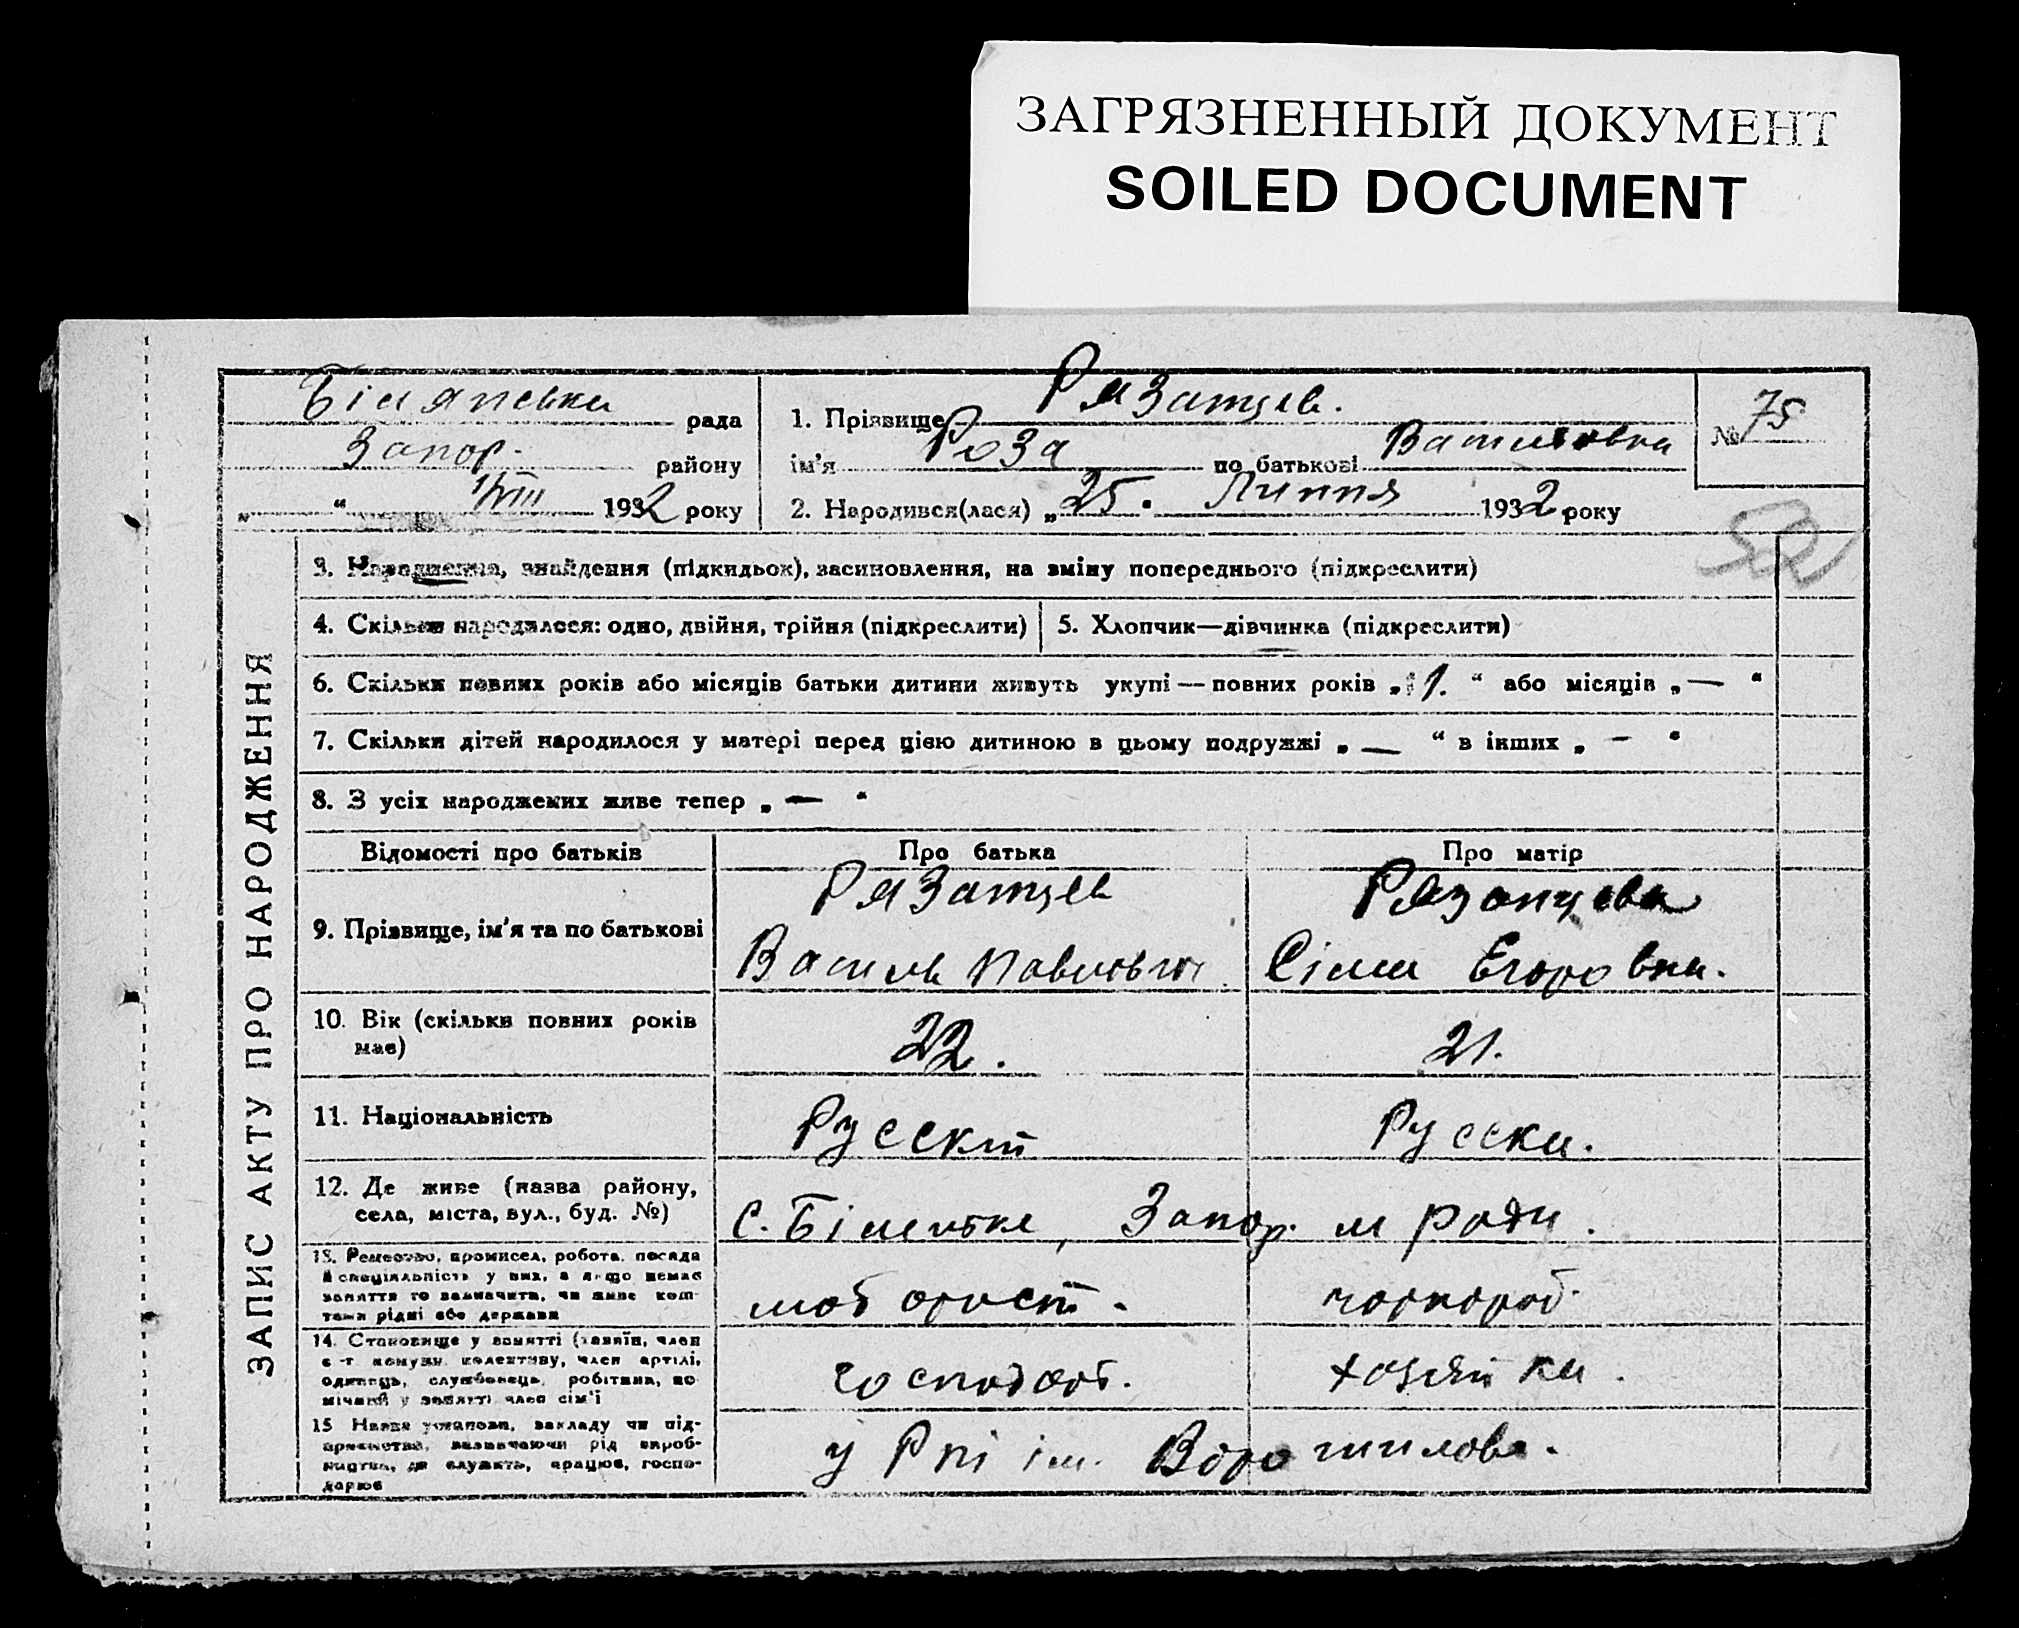 ЗАГРЯЗНЕННЫЙ ДОКУМЕНТ
SOILED DOCUMENT
рада
Запор. району
„ “ 1/VIII 1932 року
1. Прізвище Рязанцев.
ім'я Роза по батькові Василовна
2. Народився(лася) „25. Липня 1932 року
№ 75
ЗАПИС АКТУ ПРО НАРОДЖЕННЯ
3. Народження, знайдення (підкидьок), засиновлення, на зміну попереднього (підкреслити)
4. Скільки народилося: одно, двійня, трійня (підкреслити)
5. Хлопчик—дівчинка (підкреслити)
6. Скільки повних років або місяців батьки дитини живуть укупі — повних років „ 1. “ або місяців „ — “
7. Скільки дітей народилося у матері перед цією дитиною в цьому подружжі „ — “ в інших „ — “
8. З усіх народжених живе тепер „ — “
Відомості про батьків Про батька Про матір
9. Прізвище, ім'я та по батькові
Рязанцев
Василь Павлович
Рязанцева
Сіма Егоровна.
10. Вік (скільки повних років
має)
22. 21.
11. Національність Русский Русска.
12. Де живе (назва району,
села, міста, вул., буд. №)
с. Запор. ради.
13. Ремество, промисел, робота, посада
й спеціяльність у них, а якщо немає
заняття то зазначити, чи живе кош-
тами рідні або держави
чорнороб.
14. Становище у занятті (хазяїн, член
с-г комуни, колективу, член артілі,
одинець, службовець, робітник, по-
мічний у занятті член сім'ї
хазяйка.
15 Назва установи, закладу чи під-
приємства, зазначаючи рід вироб-
ництва, де служить, працює, госпо-
дарює
у ім. Ворошилова.